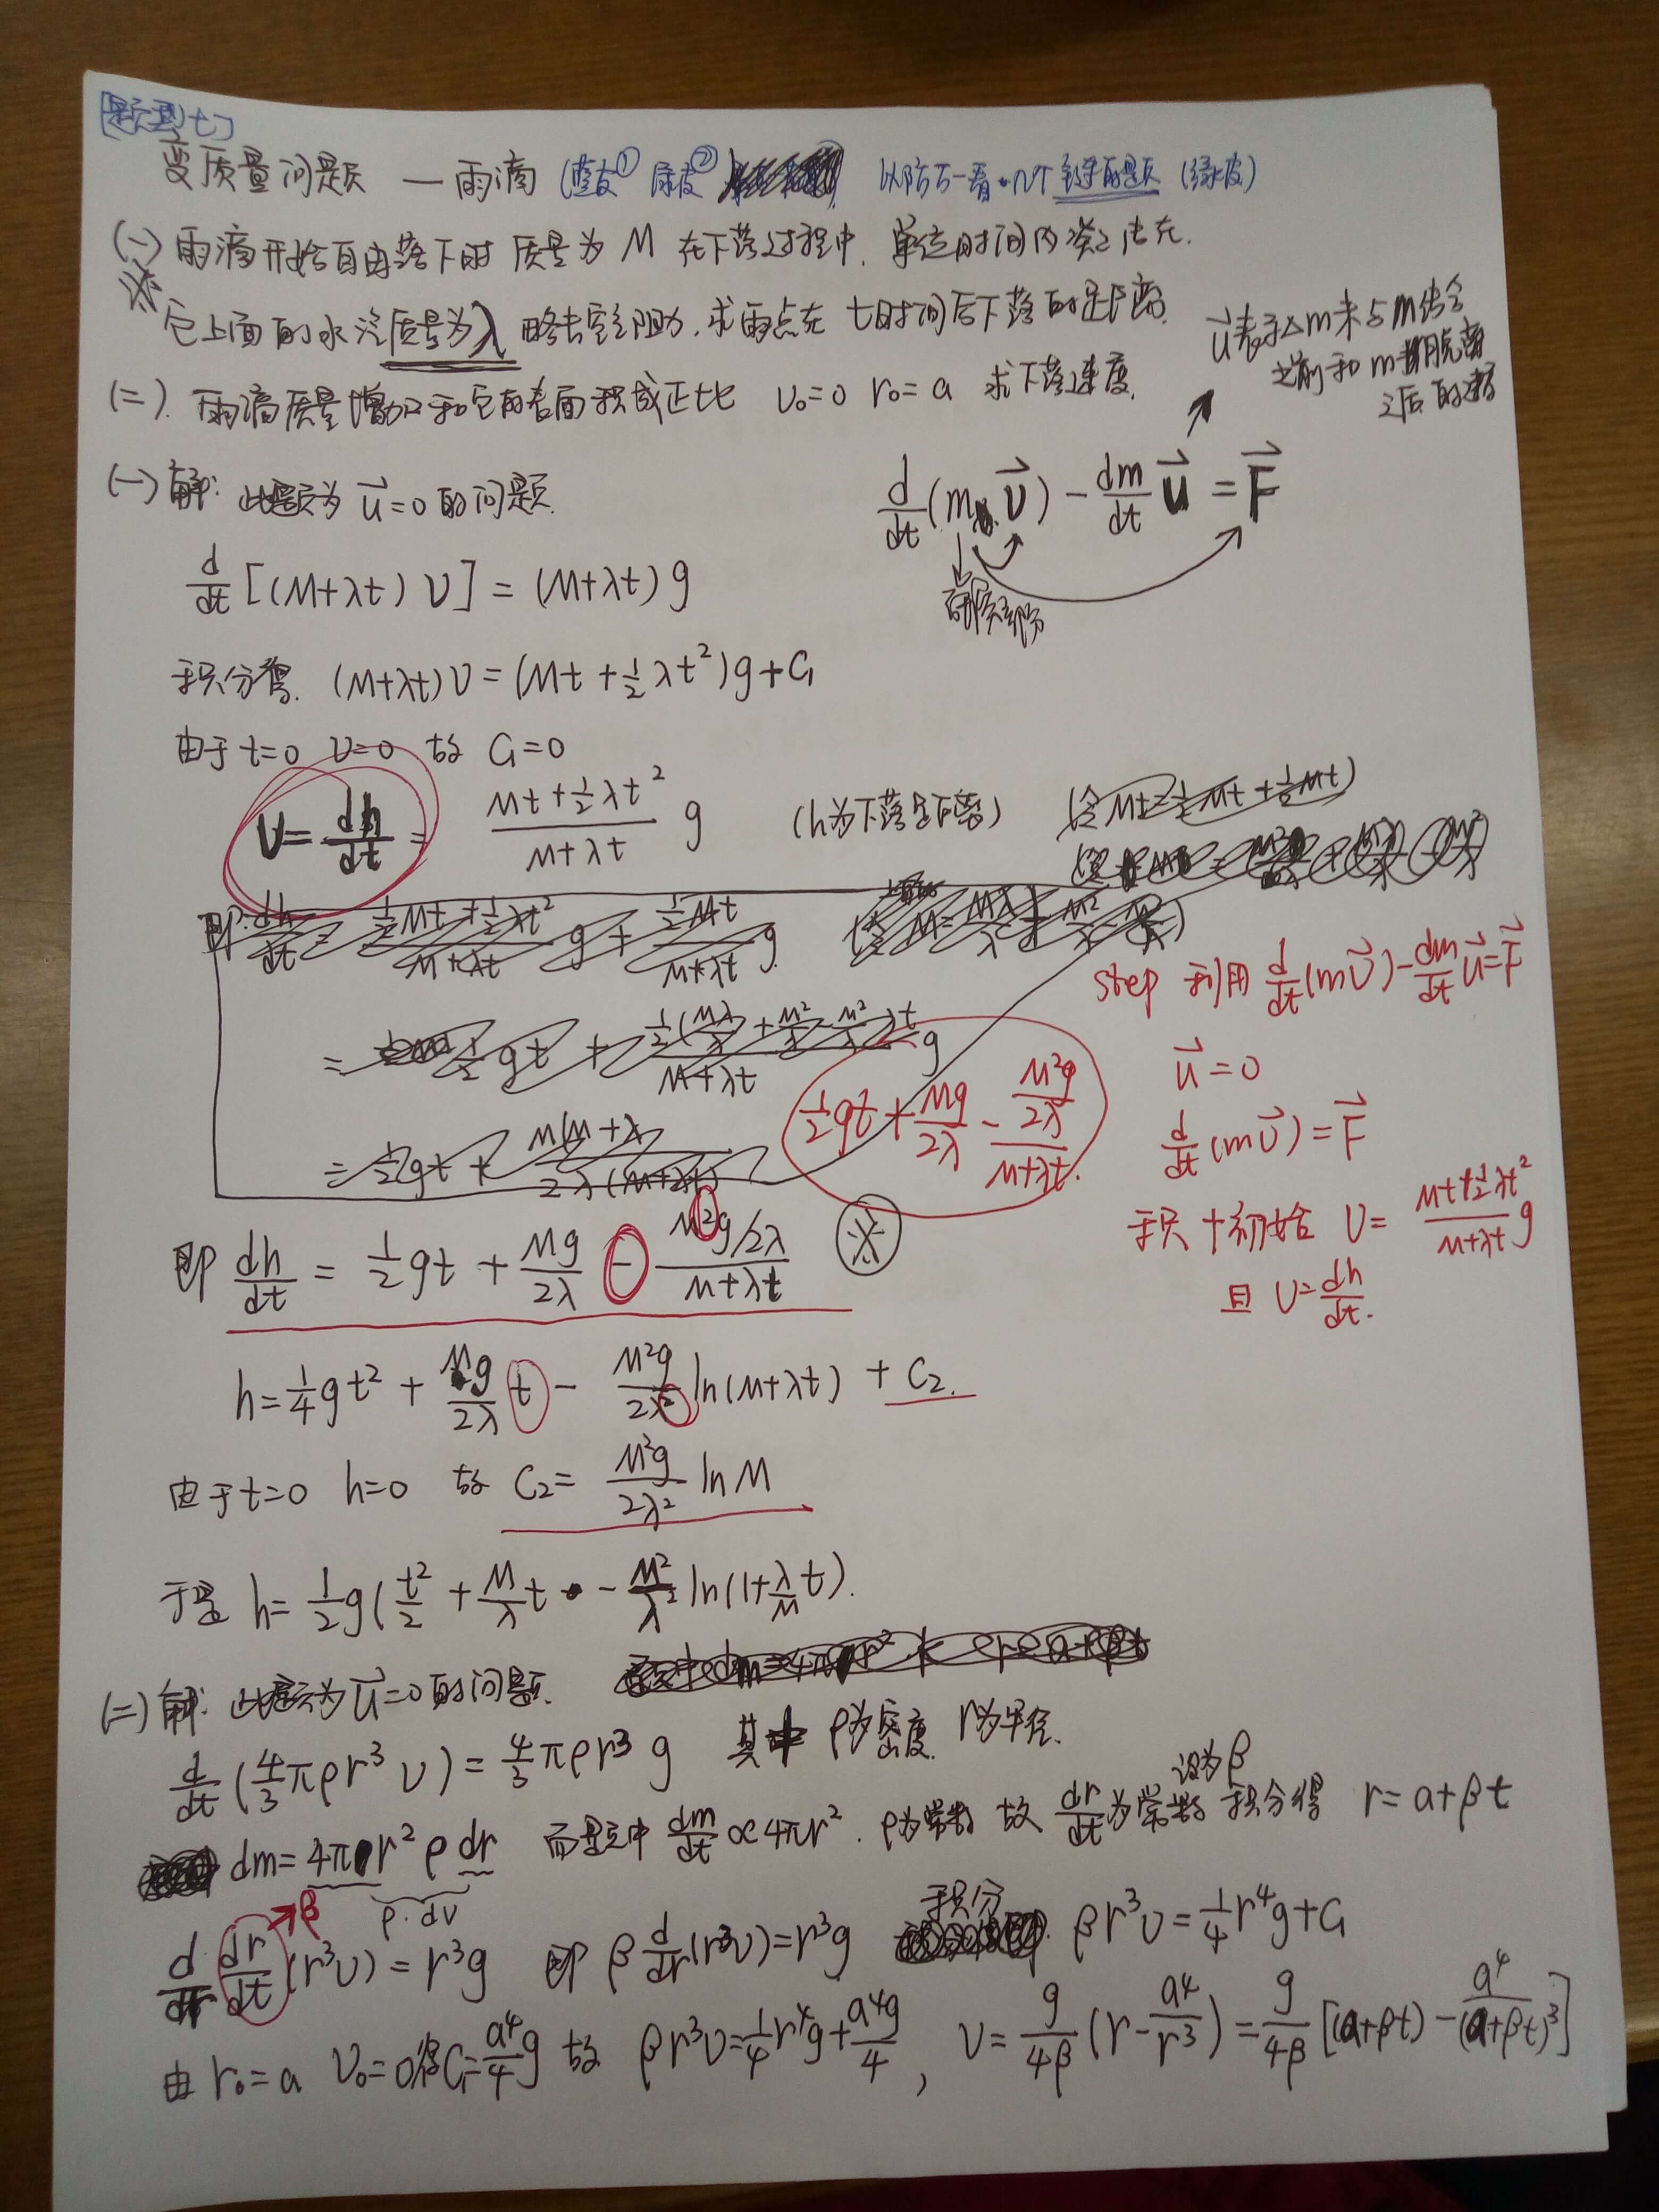 [题型七]
变质量问题 — 雨滴 (蓝皮① 绿皮② 以防万一看 (绿皮)
(一) 雨滴开始自由落下时 质量为 M 在下落过程中. 单位时间内凝结在
※ 它上面的水汽质量为λ 略去空气阻力. 求雨点在 t时间后下落的距离.
(二). 雨滴质量增加和它的表面积成正比 v₀=0 r₀=a 求下落速度.
u⃗表示△m未与m结合
之前和m脱离
之后的速度
(一) 解: 此题为 u⃗=0 的问题.
d/dt(m v⃗) - dm/dt u⃗ = F⃗
d/dt [(M+λt) v] = (M+λt) g
积分得. (M+λt)v = (Mt+½λt²)g + C₁
由于 t=0 v=0 故 C₁=0
v = dh/dt = (Mt+½λt²)/(M+λt) g (h为下落距离)
½gt + Mg/2λ - (M²g/2λ)/(M+λt).
step 利用 d/dt(mv⃗) - dm/dt u⃗ = F⃗
u⃗ = 0
d/dt(mv⃗) = F⃗
积+初始 v = (Mt+½λt²)/(M+λt) g
且 v = dh/dt.
即 dh/dt = ½gt + Mg/2λ - (M²g/2λ)/(M+λt) ※
h = ¼gt² + Mg/2λ t - M²g/2λ² ln(M+λt) + C₂.
由于 t=0 h=0 故 C₂ = M²g/2λ² ln M
于是 h = ½g(t²/2 + M/λ t - M²/λ² ln(1+λ/M t).
(二) 解: 此题为 u⃗=0 的问题.
d/dt (4/3 πρr³ v) = 4/3 πρr³ g 其中 ρ为密度. r为半径.
dm = 4πr² ρ dr 而题中 dm/dt ∝ 4πr². ρ为常数 故 dr/dt 为常数 设为β 积分得 r = a+βt
ρ·dV
→β
d/dr dr/dt (r³v) = r³g 即 β d/dr (r³v) = r³g 积分 βr³v = ¼r⁴g + C₁
由 r₀=a v₀=0得C₁=a⁴/4 g 故 βr³v = ¼r⁴g + a⁴g/4 , v = g/4β (r - a⁴/r³) = g/4β [(a+βt) - a⁴/(a+βt)³]